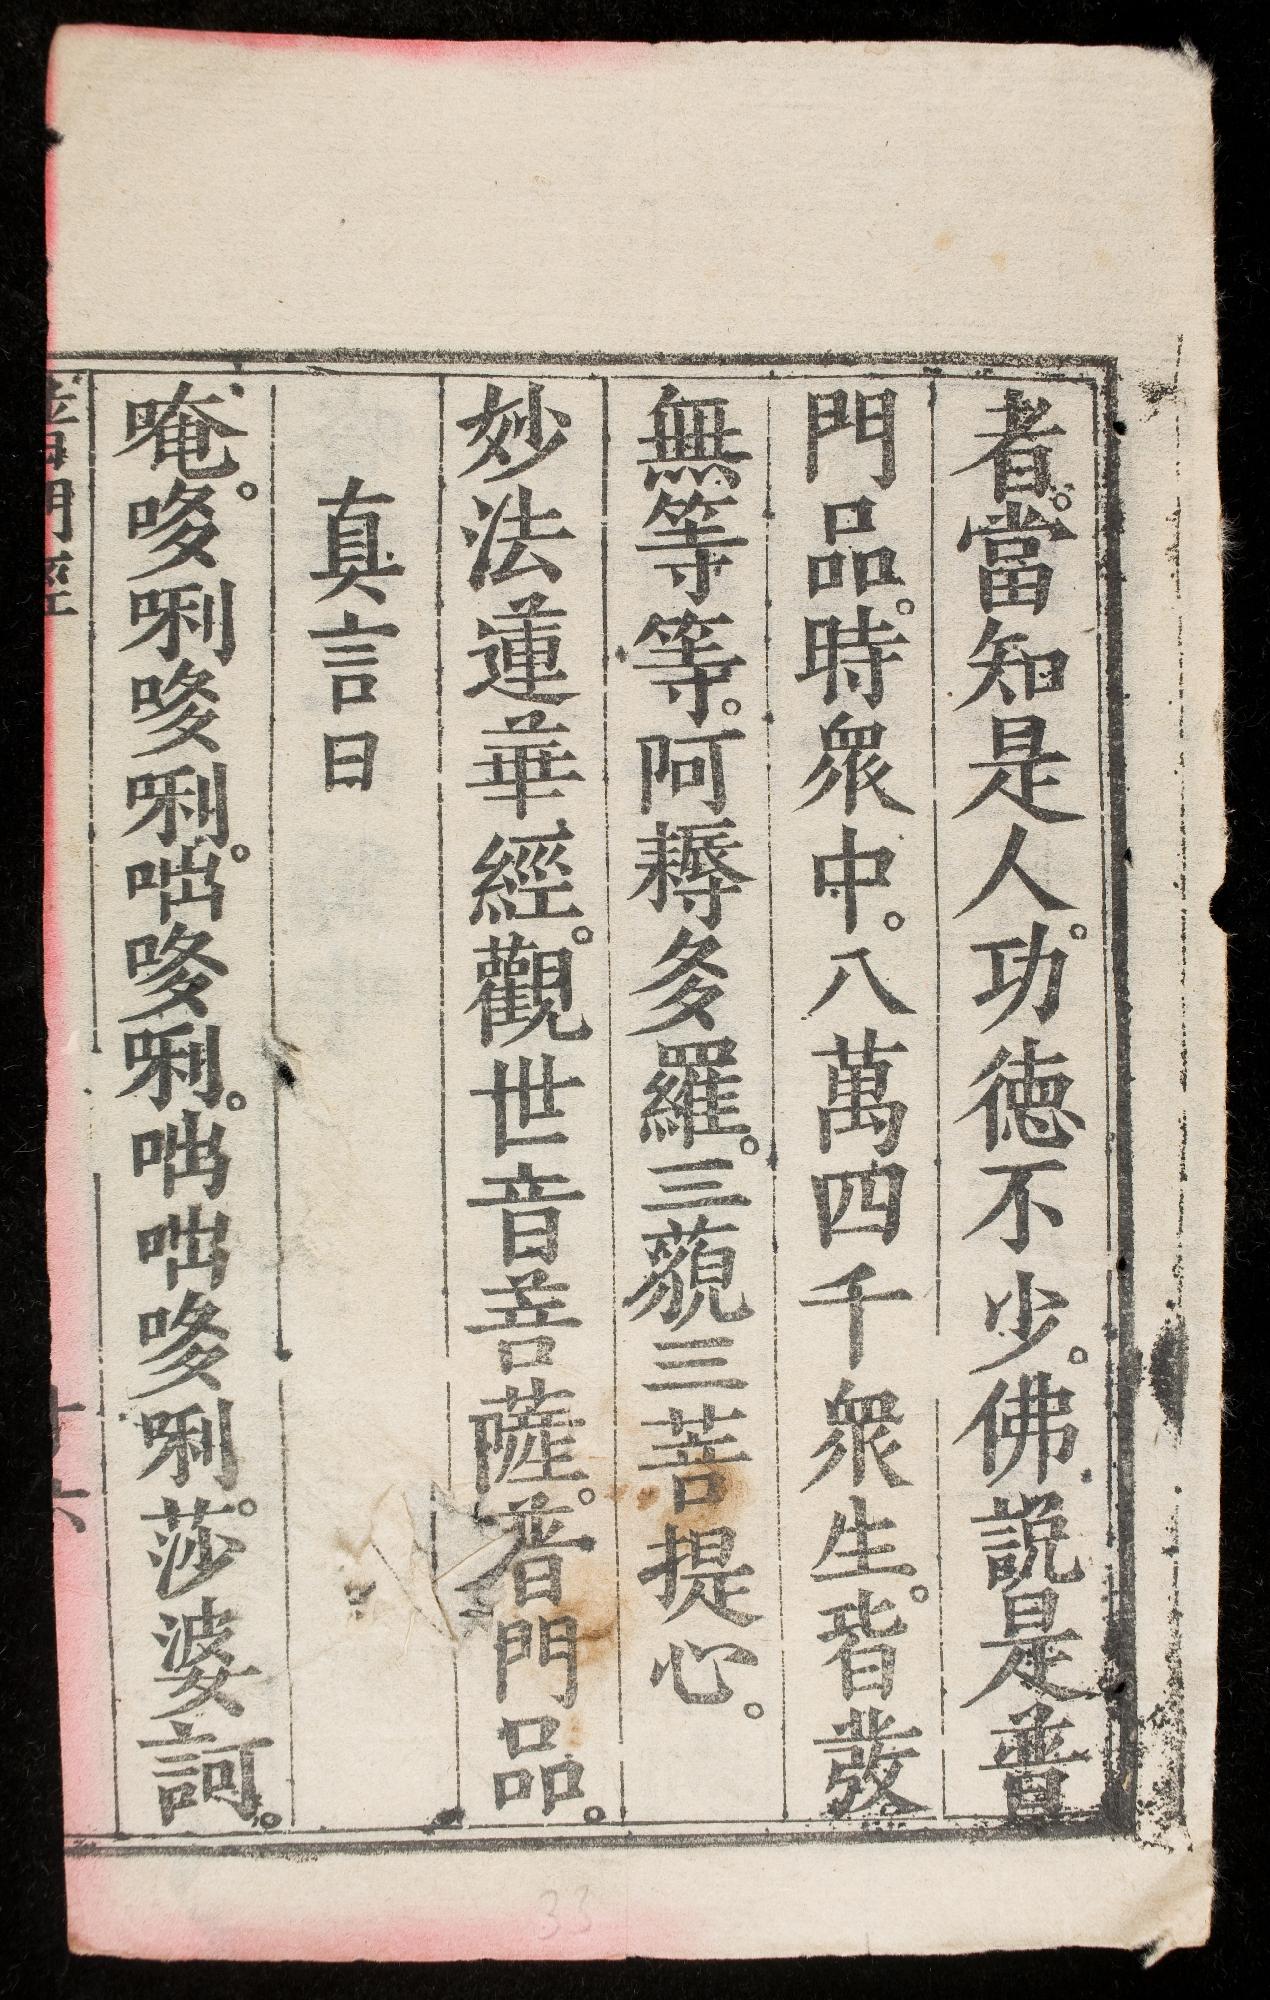 者。當知是人。功德不少。佛說是普
門品。時衆中。八萬四千衆生。皆發
無等等。阿耨多羅。三藐三菩提心。
妙法蓮華經。觀世音菩薩。普門品。
真言曰
唵。哆唎哆唎。咄哆唎。咄咄哆唎。莎婆訶。
普門經
33